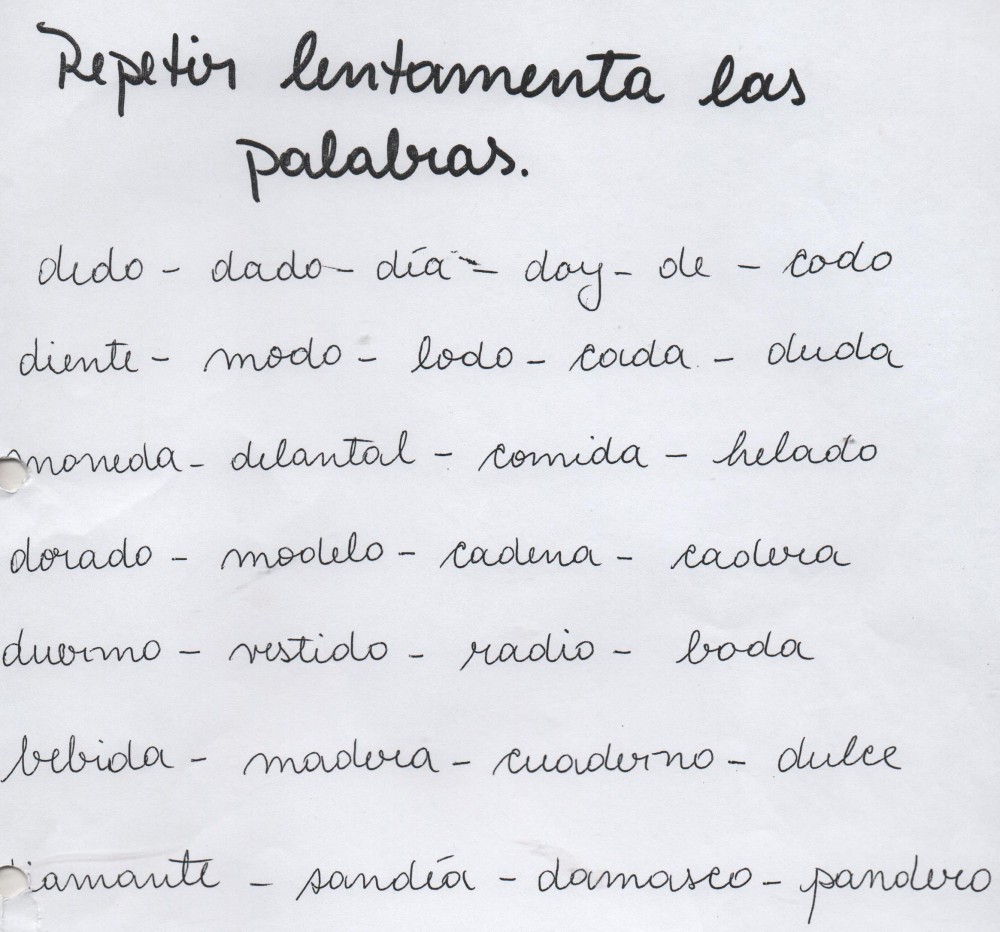 Repetir lentamenta las
palabras.
dedo - dado - día - doy - de - codo
diente - modo - lodo - cada - duda
moneda - delantal - comida - helado
dorado - modelo - cadena - cadera
duermo - vestido - radio - boda
bebida - madera - cuaderno - dulce
diamante - sandía - damasco - pandero